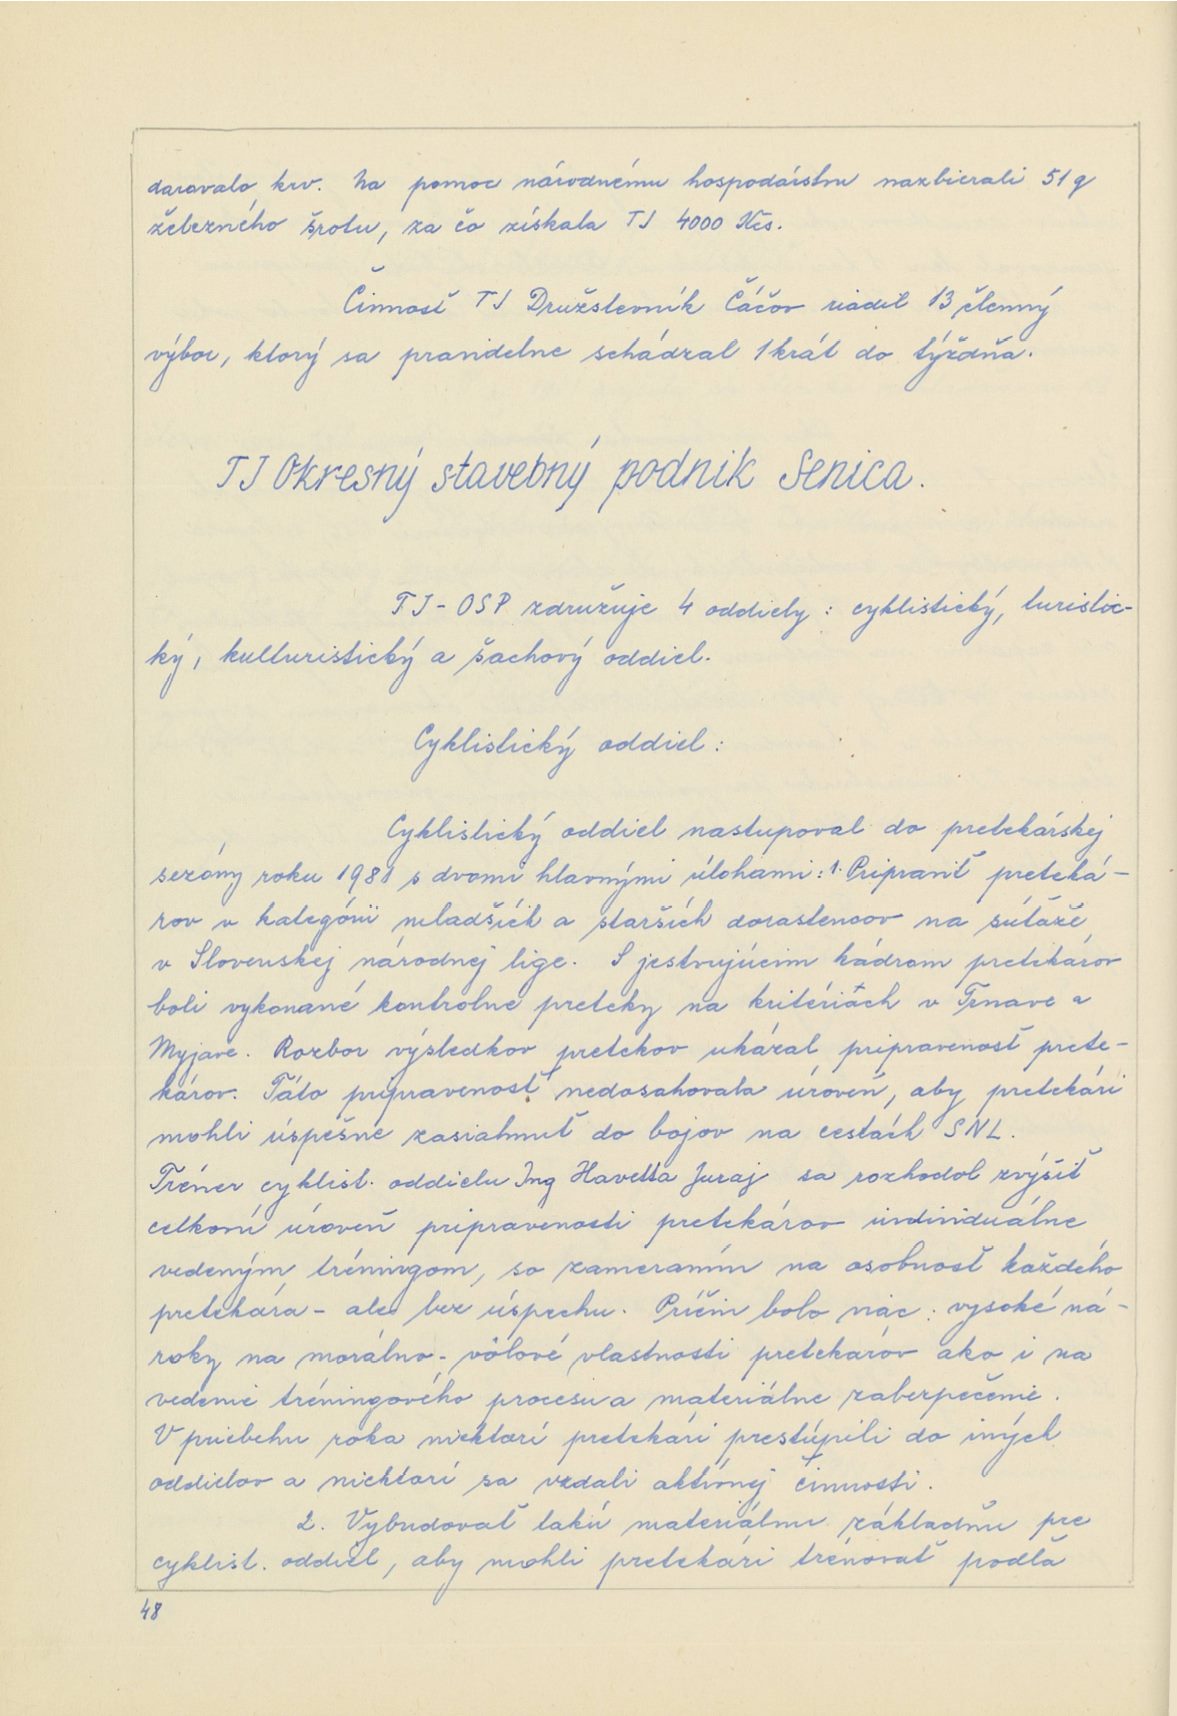 daravalo krv. Na pomoc národnému hospodárstvu nazbierali 51 q
železného šrotu, za čo získala TJ 4000 Kčs.
Činnosť TJ Družstevník Čáčov riadil 13 členný
výbor, ktorý sa pravidelne schádzal 1 krát do týždňa.
TJ Okresný stavebný podnik Senica.
TJ - OSP združuje 4 oddiely : cyklistický, turistic-
ký, kulturistický a šachový oddiel.
Cyklistický oddiel :
Cyklistický oddiel nastupoval do pretekárskej
sezóny roku 1981 s dvomi hlavnými úlohami : 1. Pripraviť preteká-
rov v kategórii mladších a starších dorastencov na súťaže
v Slovenskej národnej lige. S jestvujúcim kádrom pretekárov
boli vykonané kontrolne preteky na kritériách v Trnave a
Myjave. Rozbor výsledkov pretekov ukázal pripravenosť prete-
károv. Táto pripravenosť nedosahovala úroveň, aby pretekári
mohli úspešne zasiahnuť do bojov na cestách SNL.
Tréner cyklist. oddielu Ing Havetta Juraj sa rozhodol zvýšiť
celkovú úroveň pripravenosti pretekárov individuálne
vedeným tréningom, so zameraním na osobnosť každého
pretekára - ale bez úspechu. Príčin bolo viac : vysoké ná-
roky na morálno - vôlové vlastnosti pretekárov ako i na
vedenie tréningového procesu a materiálne zabezpečenie.
V priebehu roka niektorí pretekári prestúpili do iných
oddielov a niektorí sa vzdali aktívnej činnosti.
2. Vybudovať takú materiálnu základňu pre
cyklist. oddiel, aby mohli pretekári trénovať podľa
48